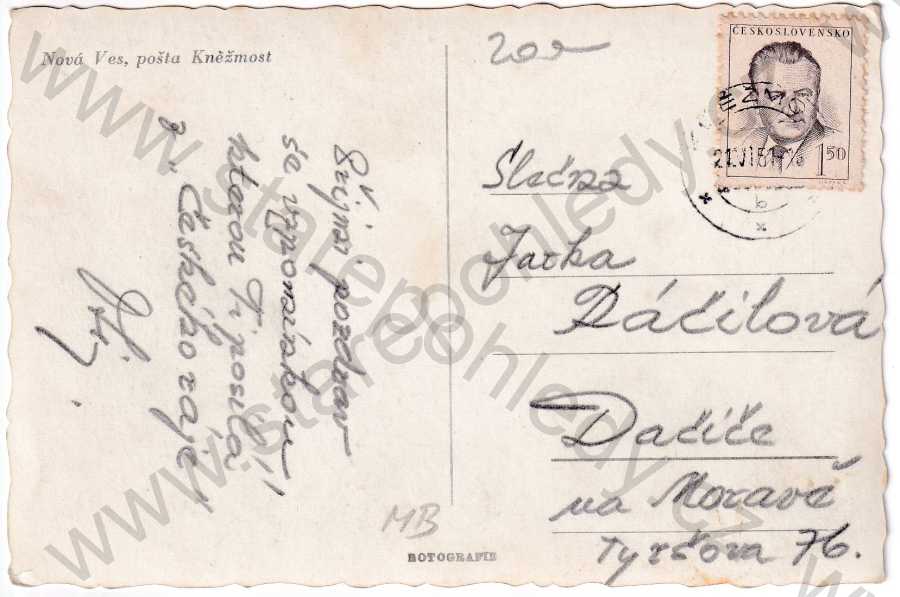 Nová Ves, pošta Kněžmost
ČESKOSLOVENSKO
1 50
21.VI.51
b
Slečna
Jarka
Dáčilová
Dačice
na Moravě
Tyršova 76.
pozdrav
se vzpomínkou,
kterou Ti posílá
z Českého ráje
MB
FOTOGRAFIE
www.starepohledy.cz